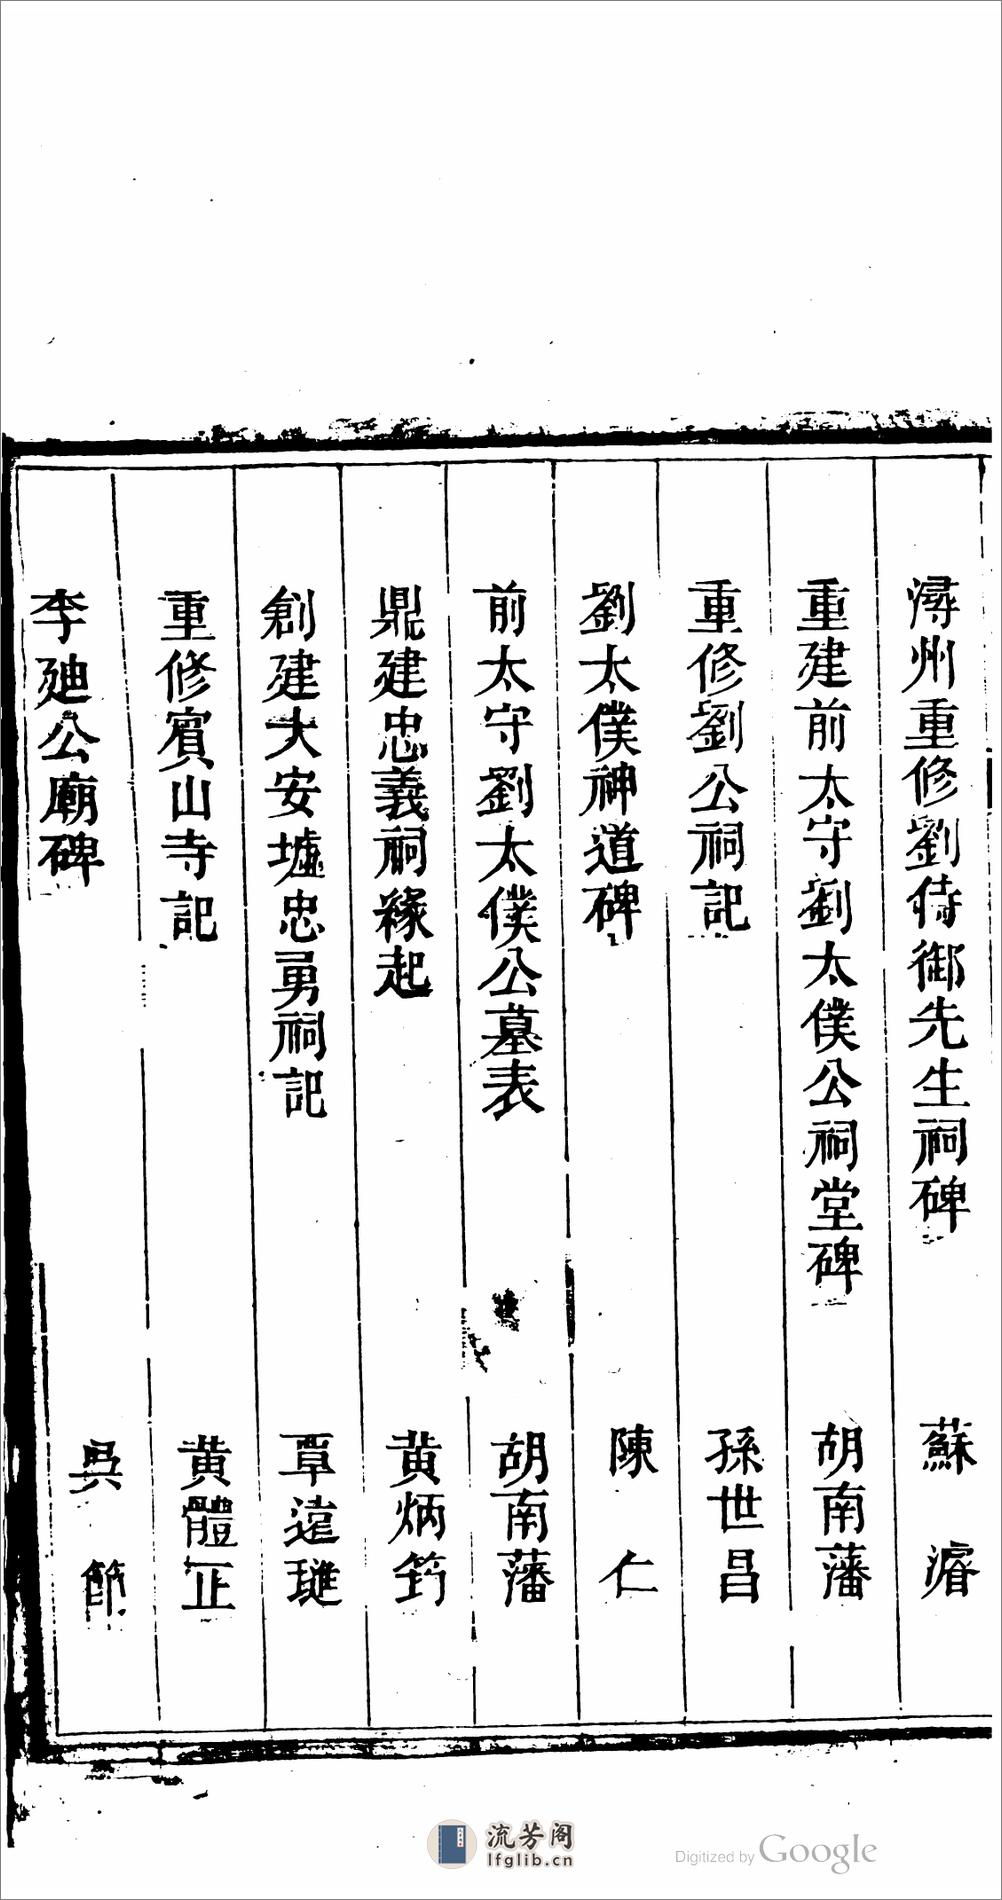 潯州重修劉侍御先生祠碑 蘇濬
重建前太守劉太僕公祠堂碑 胡南藩
重修劉公祠記 孫世昌
劉太僕神道碑 陳仁
前太守劉太僕公墓表 胡南藩
鼎建忠義祠緣起 黄炳筠
創建大安墟忠勇祠記 覃遠璡
重修賓山寺記 黄體正
李廸公廟碑 吳節
流芳阁
lfglib.cn
Digitized by Google